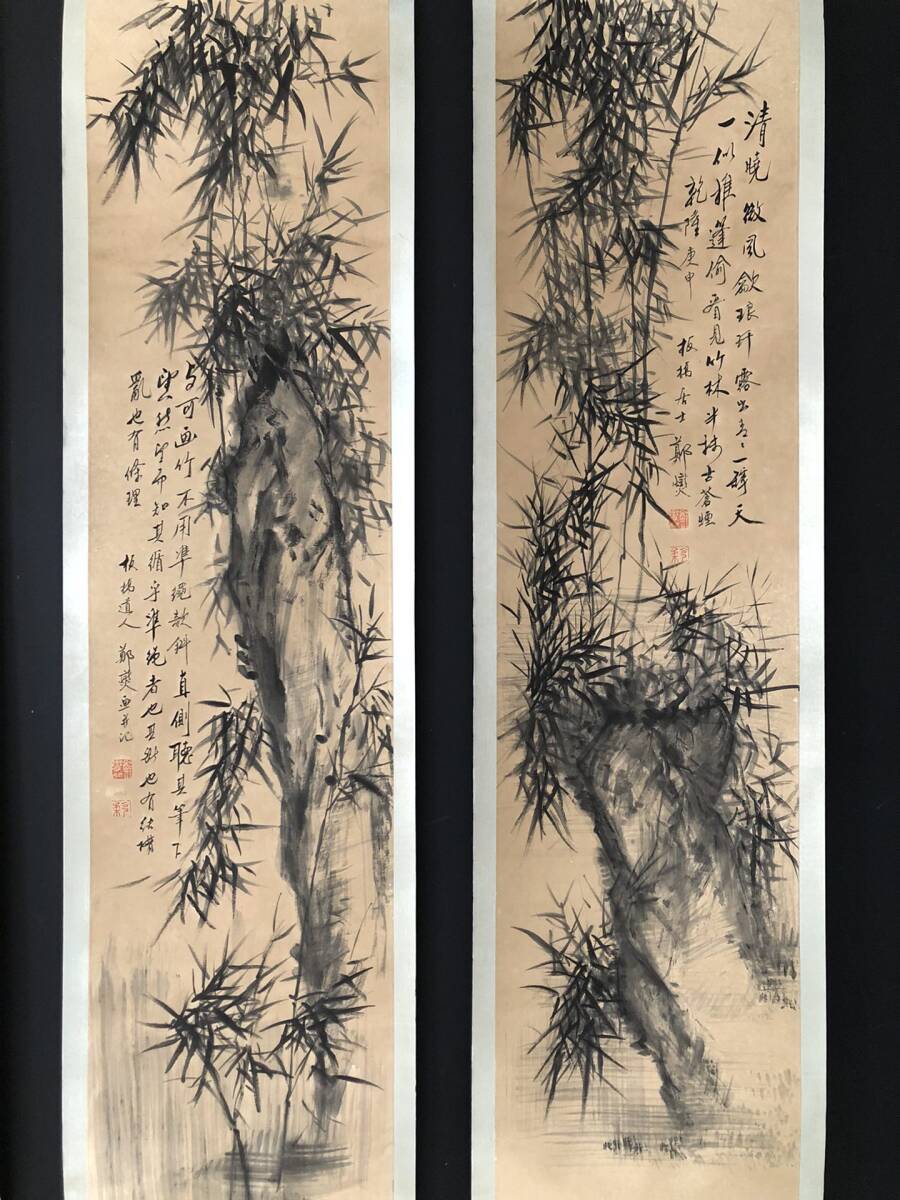 清曉微風歛琅玕露出青〻一罅天
一似推蓬偷看見竹林半抹古蒼煙
乾隆庚申 板橋居士 鄭燮
与可画竹不用準繩欹斜直側聽其筆下
然望而知其循乎準绳者也其也有結構
亂也有條理
板橋道人 鄭燮画并记